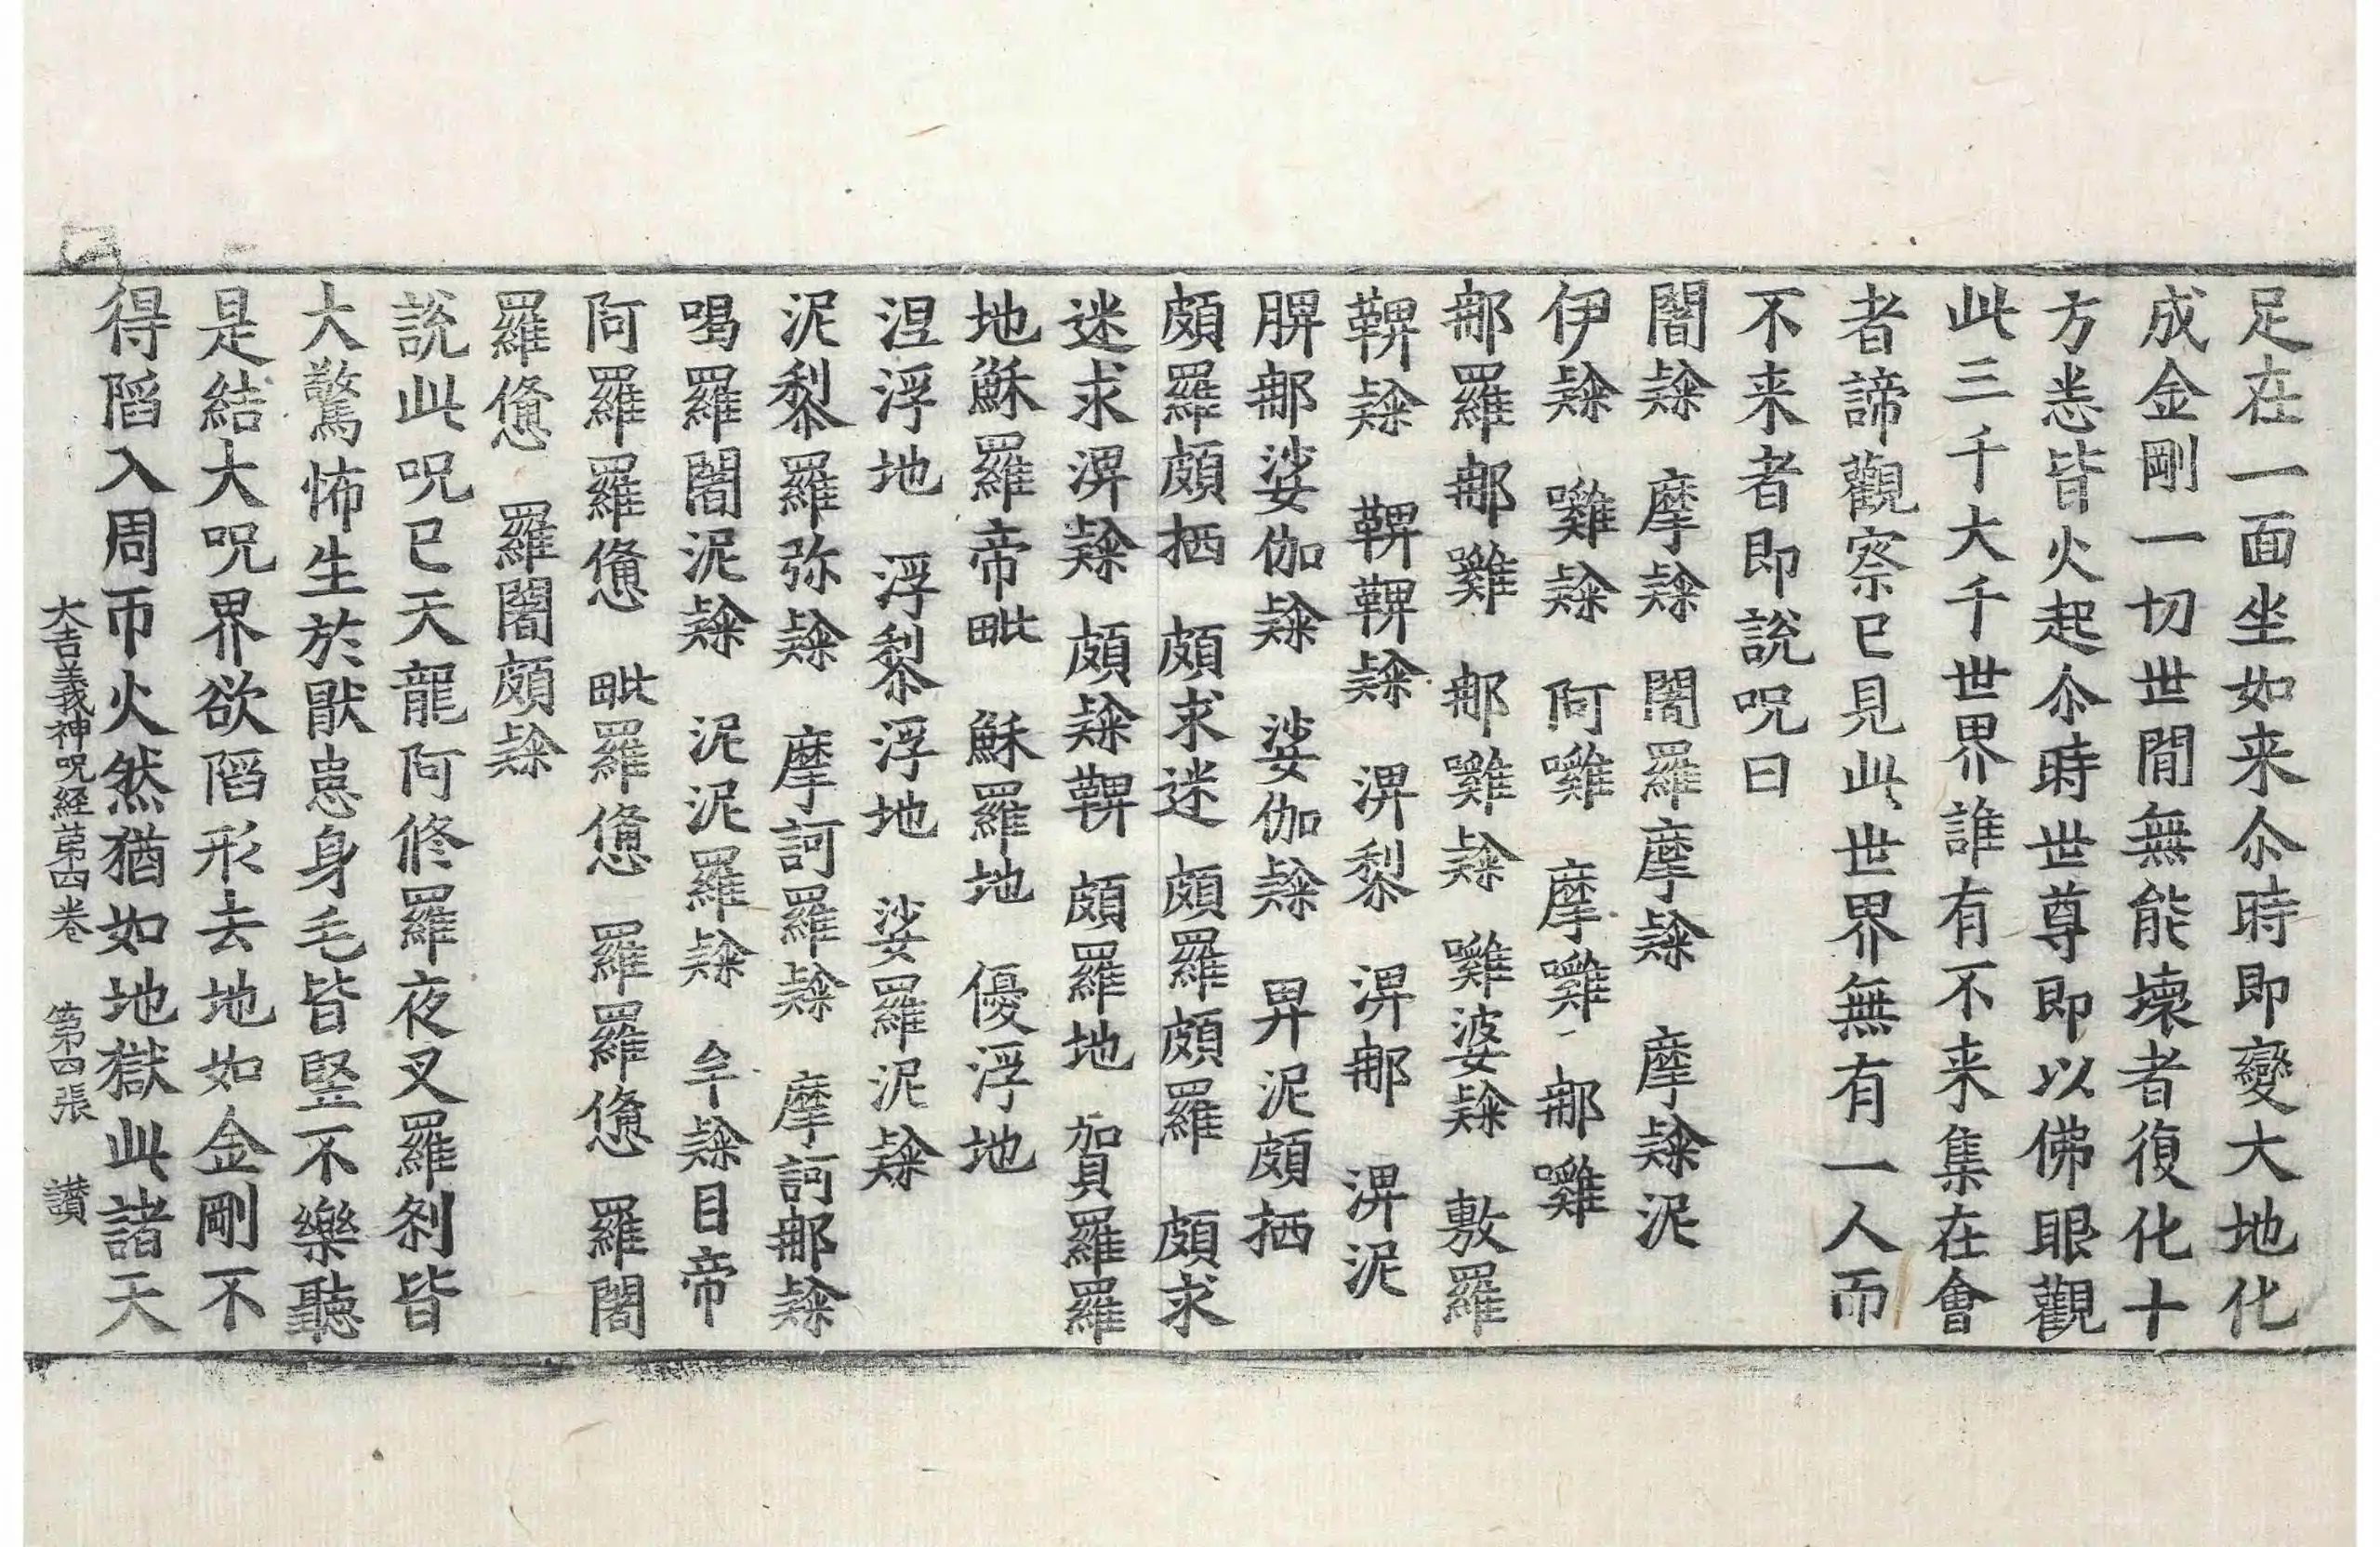 足在一面坐如来尒時即變大地化
成金剛一切世間無能壞者復化十
方悉皆火起尒時世尊即以佛眼觀
此三千大千世界誰有不来集在會
者諦觀察已見此世界無有一人而
不来者即說呪曰
闍隸 摩隸 闍羅摩隸 摩隸泥
伊隸 囄隸 阿囄 摩囄 郍囄
郍羅郍囄 郍囄隸 囄婆隸 敷羅
鞞隸 鞞鞞隸 渒黎 渒郍 渒泥
脾郍娑伽隸 娑伽隸 畀泥頗栖
頗羅頗栖 頗求迷 頗羅頗羅 頗求
迷求渒隸 頗隸鞞 頗羅地 加貝羅羅
地穌羅帝毗 穌羅地 優浮地
涅浮地 浮黎浮地 娑羅泥隸
泥黎羅弥隸 摩訶羅隸 摩訶郍隸
喝羅闍泥隸 泥泥羅隸 牟隸目帝
阿羅羅憊 毗羅憊 羅羅憊 羅闍
羅憊 羅闍頗隸
說此呪已天龍阿修羅夜叉羅刹皆
大驚怖生於猒患身毛皆竪不樂聽
是結大呪界欲陷形去地如金剛不
得陷入周帀火然猶如地獄此諸天
大吉義神呪経第四卷 第四張 讃